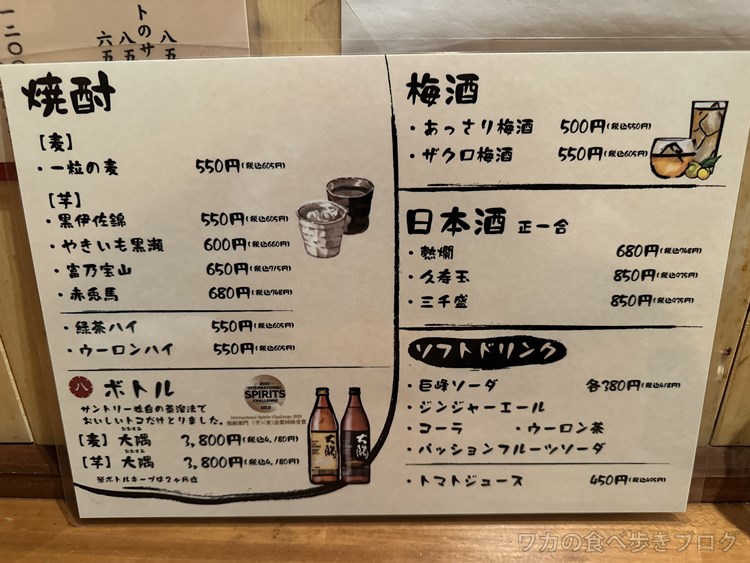 トのサ
八五
八五
六五
一二〇〇
焼酎
【麦】
・一粒の麦 550円(税込605円)
【芋】
・黒伊佐錦 550円(税込605円)
・やきいも黒瀬 600円(税込660円)
・富乃宝山 650円(税込715円)
・赤兎馬 680円(税込748円)
・緑茶ハイ 550円(税込605円)
・ウーロンハイ 550円(税込605円)
八 ボトル
サントリー独自の蒸溜法で
おいしいトコだけとりました。
【麦】大隅 3,800円(税込4,180円)
【芋】大隅 3,800円(税込4,180円)
※ボトルキープは2ヶ月位
INTERNATIONAL
SPIRITS
CHALLENGE
大隅
大隅
梅酒
・あっさり梅酒 500円(税込550円)
・ザクロ梅酒 550円(税込605円)
日本酒 正一合
・熱燗 680円(税込748円)
・久寿玉 850円(税込935円)
・三千盛 850円(税込935円)
ソフトドリンク
・巨峰ソーダ 各380円(税込418円)
・ジンジャーエール
・コーラ ・ウーロン茶
・パッションフルーツソーダ
・トマトジュース 450円(税込495円)
ワカの食べ歩きブログ